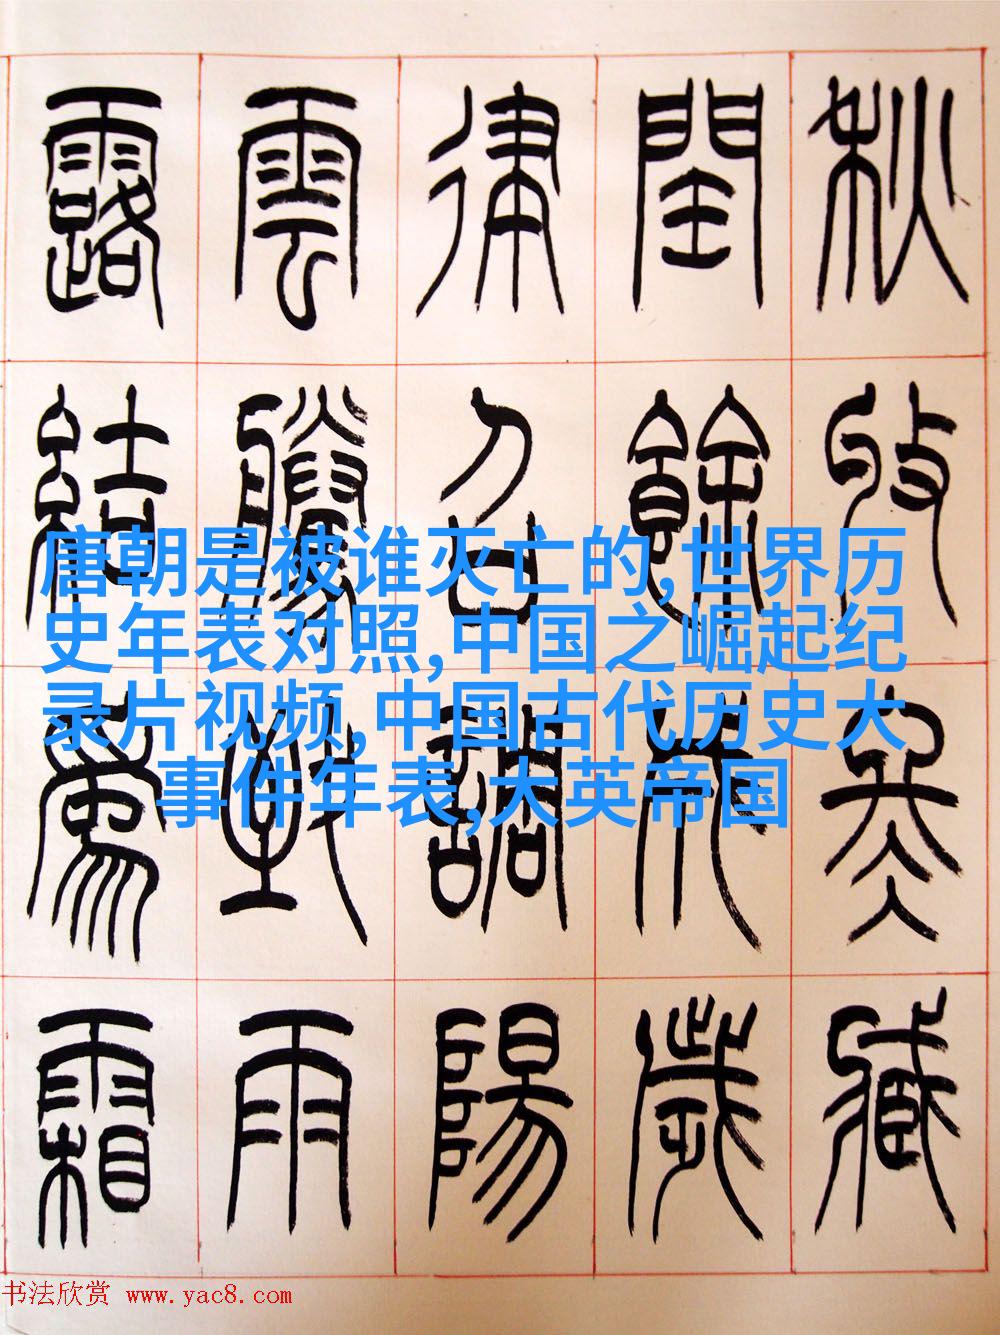 秋收冬藏
閏餘成歲
律召調陽
雲騰致雨
露結爲霜
唐朝是被谁灭亡的,世界历
史年表对照,中国之崛起纪
录片视频,中国古代历史大
事件年表,大英帝国
书法欣赏 www.yac8.com